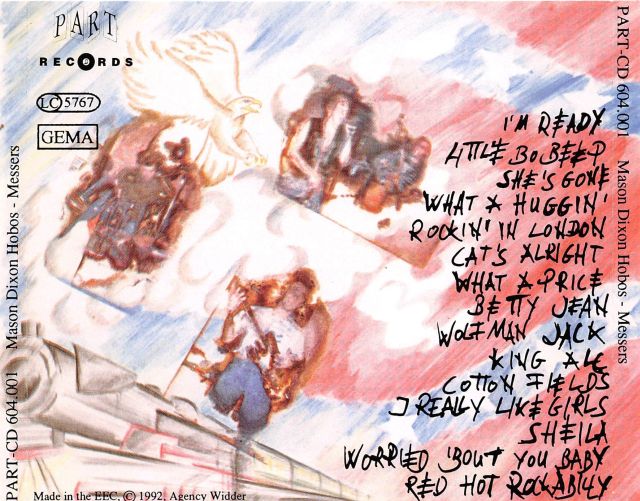 PART
RECORDS
LC 5767
GEMA
PART-CD 604.001 Mason Dixon Hobos - Messers
I'M READY
LITTLE BO BEEP
SHE'S GONE
WHAT A HUGGIN'
ROCKIN' IN LONDON
CAT'S ALRIGHT
WHAT A PRICE
BETTY JEAN
WOLFMAN JACK
KING ALC
COTTON FIELDS
I REALLY LIKE GIRLS
SHEILA
WORRIED 'BOUT YOU BABY
RED HOT ROCKABILLY
PART-CD 604.001 Mason Dixon Hobos - Messers
Made in the EEC, © 1992, Agency Widder